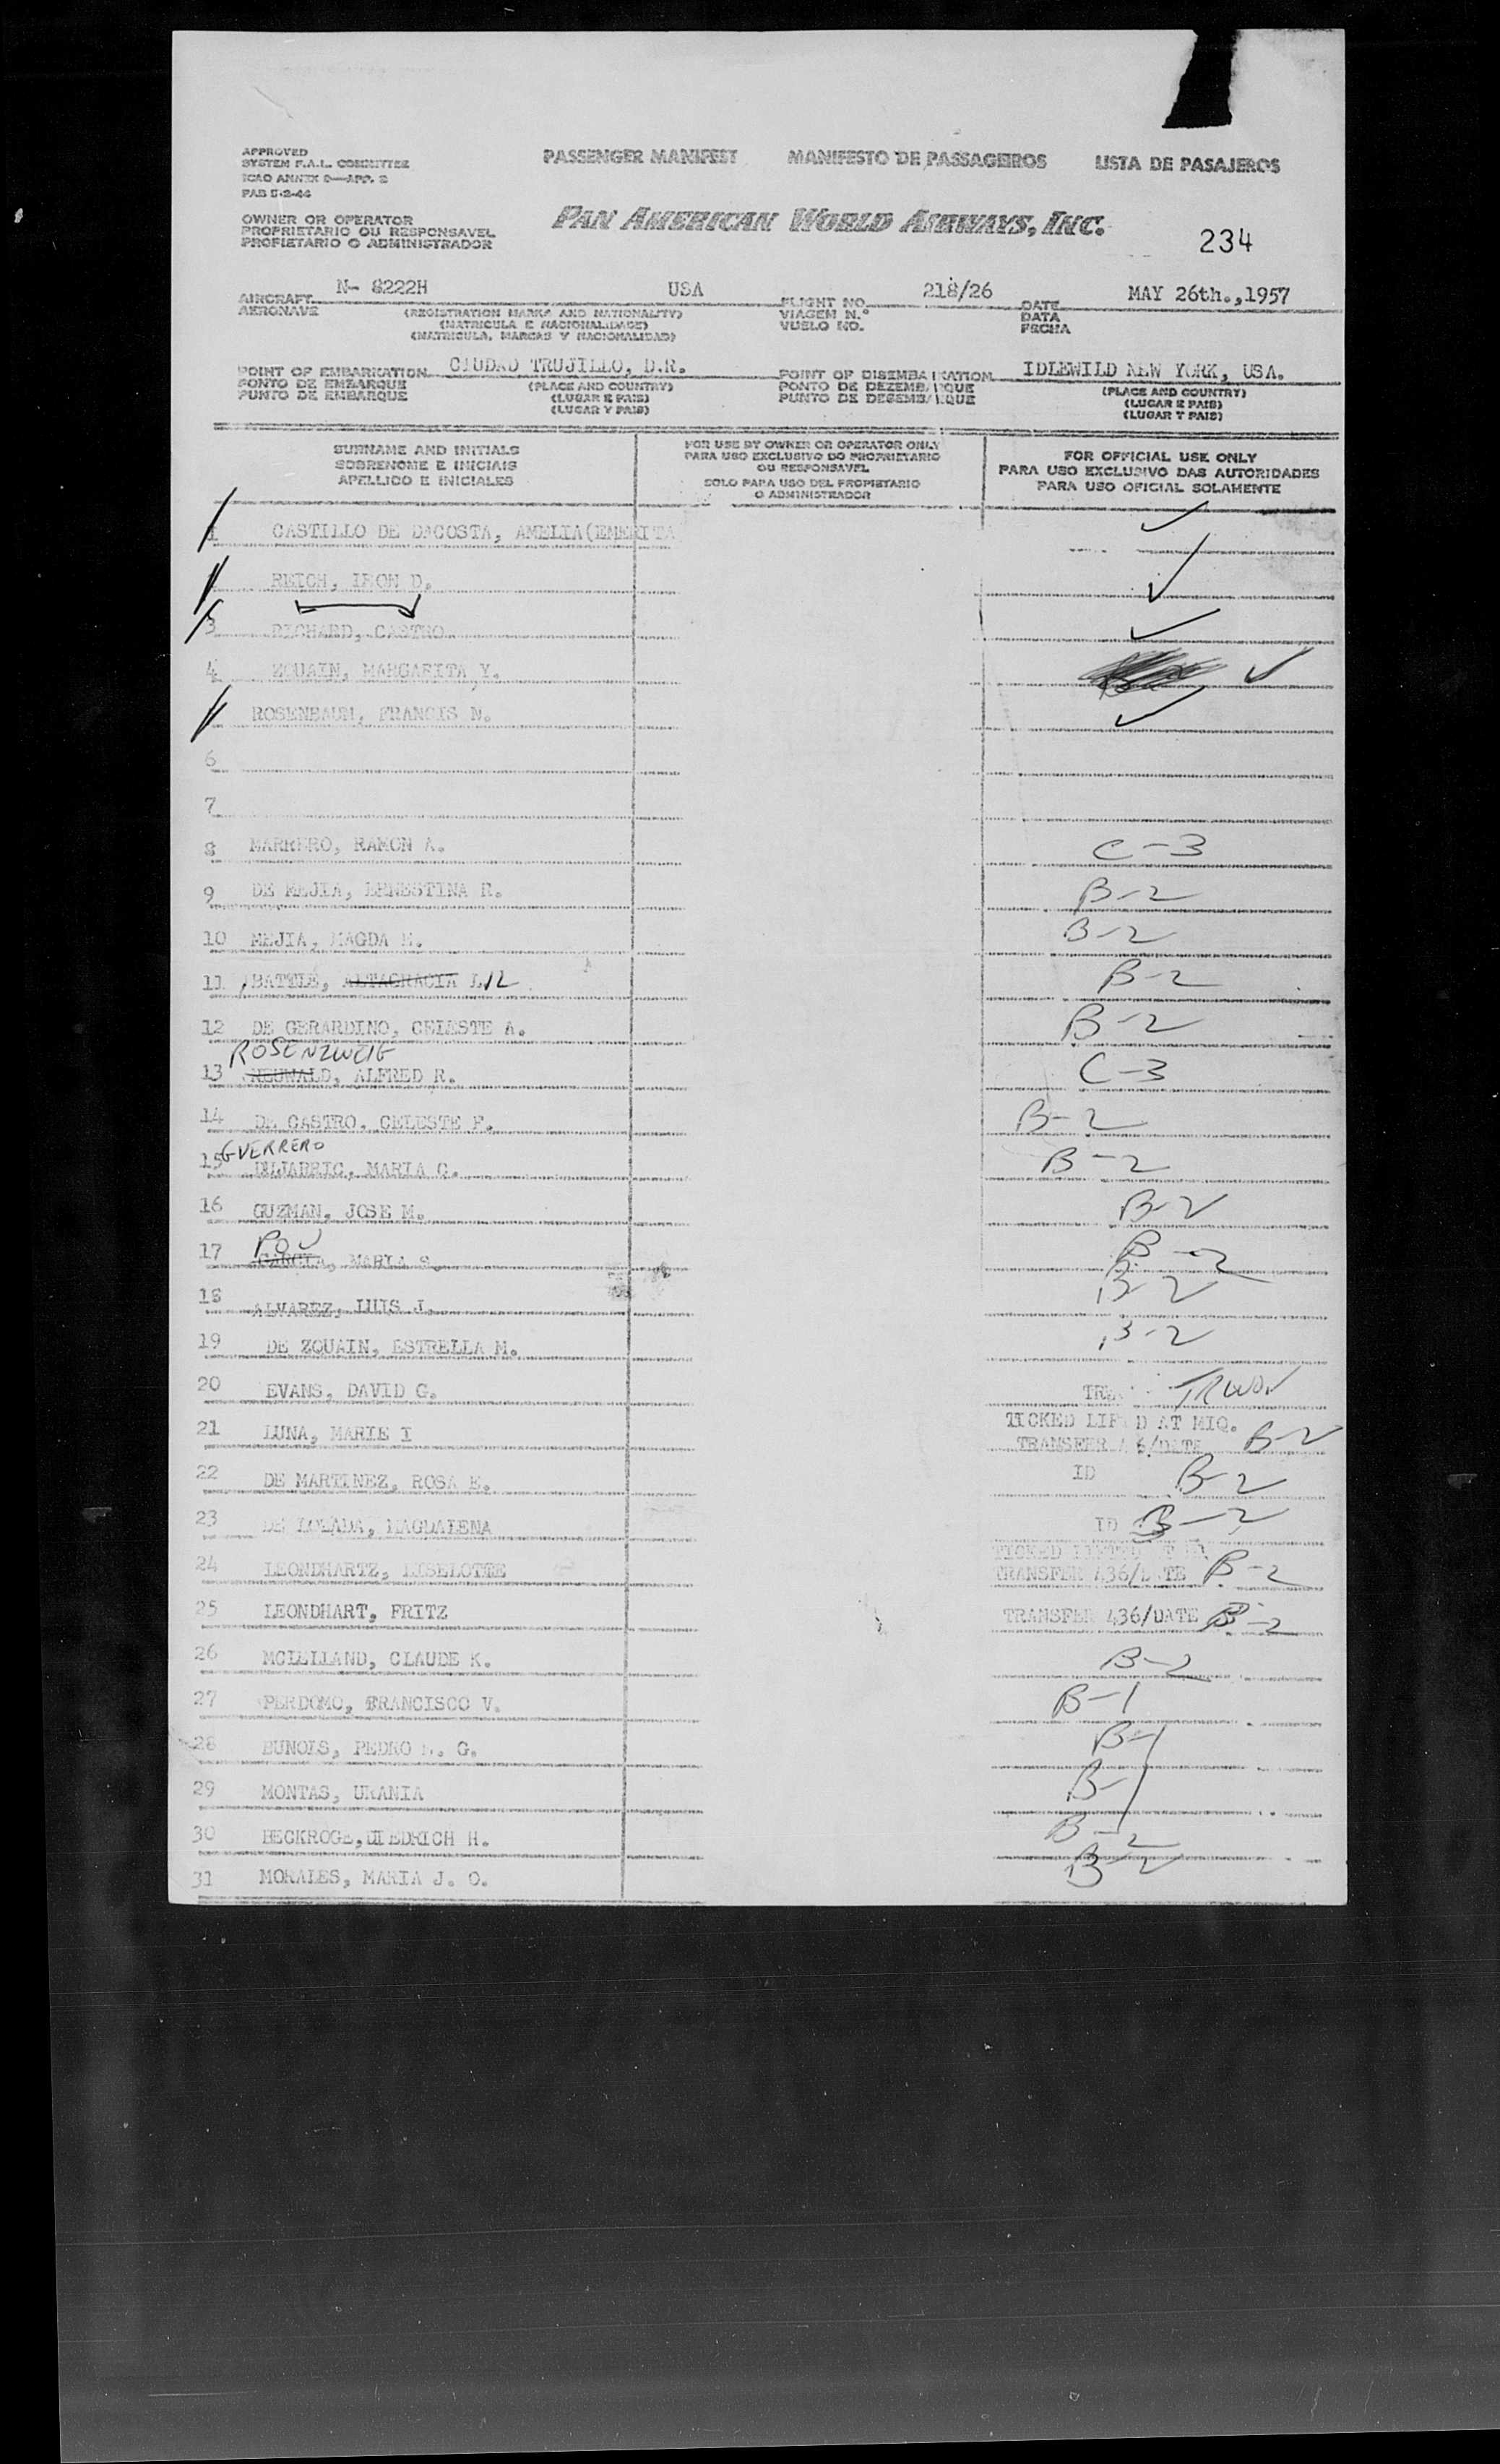 APPROVED
SYSTEM F.A.L. COMMITTEE
ICAO ANNEX 9—APP. 2
PASSENGER MANIFEST MANIFESTO DE PASSAGEIROS LISTA DE PASAJEROS
OWNER OR OPERATOR
PROPRIETARIO OU RESPONSAVEL
PROPIETARIO O ADMINISTRADOR
PAN AMERICAN WORLD AIRWAYS, INC.
234
N- 8222H USA 218/26 MAY 26th.,1957
AIRCRAFT FLIGHT NO. DATE
AERONAVE (REGISTRATION MARKS AND NATIONALITY) VIAGEM N.º DATA
(MATRICULA E NACIONALIDADE) VUELO NO. FECHA
(MATRICULA, MARCAS Y NACIONALIDAD)
CIUDAD TRUJILLO, D.R. IDLEWILD NEW YORK, USA.
POINT OF EMBARKATION POINT OF DISEMBARKATION
PONTO DE EMBARQUE (PLACE AND COUNTRY) PONTO DE DEZEMBARQUE (PLACE AND COUNTRY)
PUNTO DE EMBARQUE (LUGAR E PAIS) PUNTO DE DESEMBARQUE (LUGAR E PAIS)
(LUGAR Y PAIS) (LUGAR Y PAIS)
SURNAME AND INITIALS
SOBRENOME E INICIAIS
APELLIDO E INICIALES
FOR USE BY OWNER OR OPERATOR ONLY
PARA USO EXCLUSIVO DO PROPRIETARIO
OU RESPONSAVEL
SOLO PARA USO DEL PROPIETARIO
O ADMINISTRADOR
FOR OFFICIAL USE ONLY
PARA USO EXCLUSIVO DAS AUTORIDADES
PARA USO OFICIAL SOLAMENTE
1 CASTILLO DE DACOSTA, AMELIA(EMERITA ✓
REICH, IRON D. ✓
3 RICHARD, CASTRO ✓
4 ZOUAIN, MARGARITA Y. ✓
ROSENBAUM, FRANCIS N. ✓
6
7
8 MARRERO, RAMON A. C-3
9 DE MEJIA, ERNESTINA R. B-2
10 MEJIA, MAGDA E. B-2
11 BATTLE, ALTAGRACIA L/L B-2
12 DE GERARDINO, CELESTE A. B-2
ROSENZWEIG
13 NEUWALD, ALFRED R. C-3
14 DE CASTRO, CELESTE F. B-2
GUERRERO
15 MARIA C. B-2
16 GUZMAN, JOSE M. B-2
POU
17 GARCIA, MARIA S. B-2
18 ALVAREZ, LUIS J. B-2
19 DE ZOUAIN, ESTRELLA M. B-2
20 EVANS, DAVID G.
21 LUNA, MARIE I TICKED LIFTED AT MIQ.
TRANSFER 436/DATE B-2
22 DE MARTINEZ, ROSA E. ID B-2
23 DE LOZADA, MAGDALENA ID B-2
24 LEONDHARTZ, LISELOTTE TRANSFER 436/DATE B-2
25 LEONDHART, FRITZ TRANSFER 436/DATE B-2
26 MCLELLAND, CLAUDE K. B-2
27 PERDOMO, FRANCISCO V. B-1
28 BUNOIS, PEDRO G. B-1
29 MONTAS, URANIA B-1
30 HECKROGE,DIEDRICH H. B-2
31 MORALES, MARIA J. O. B-2